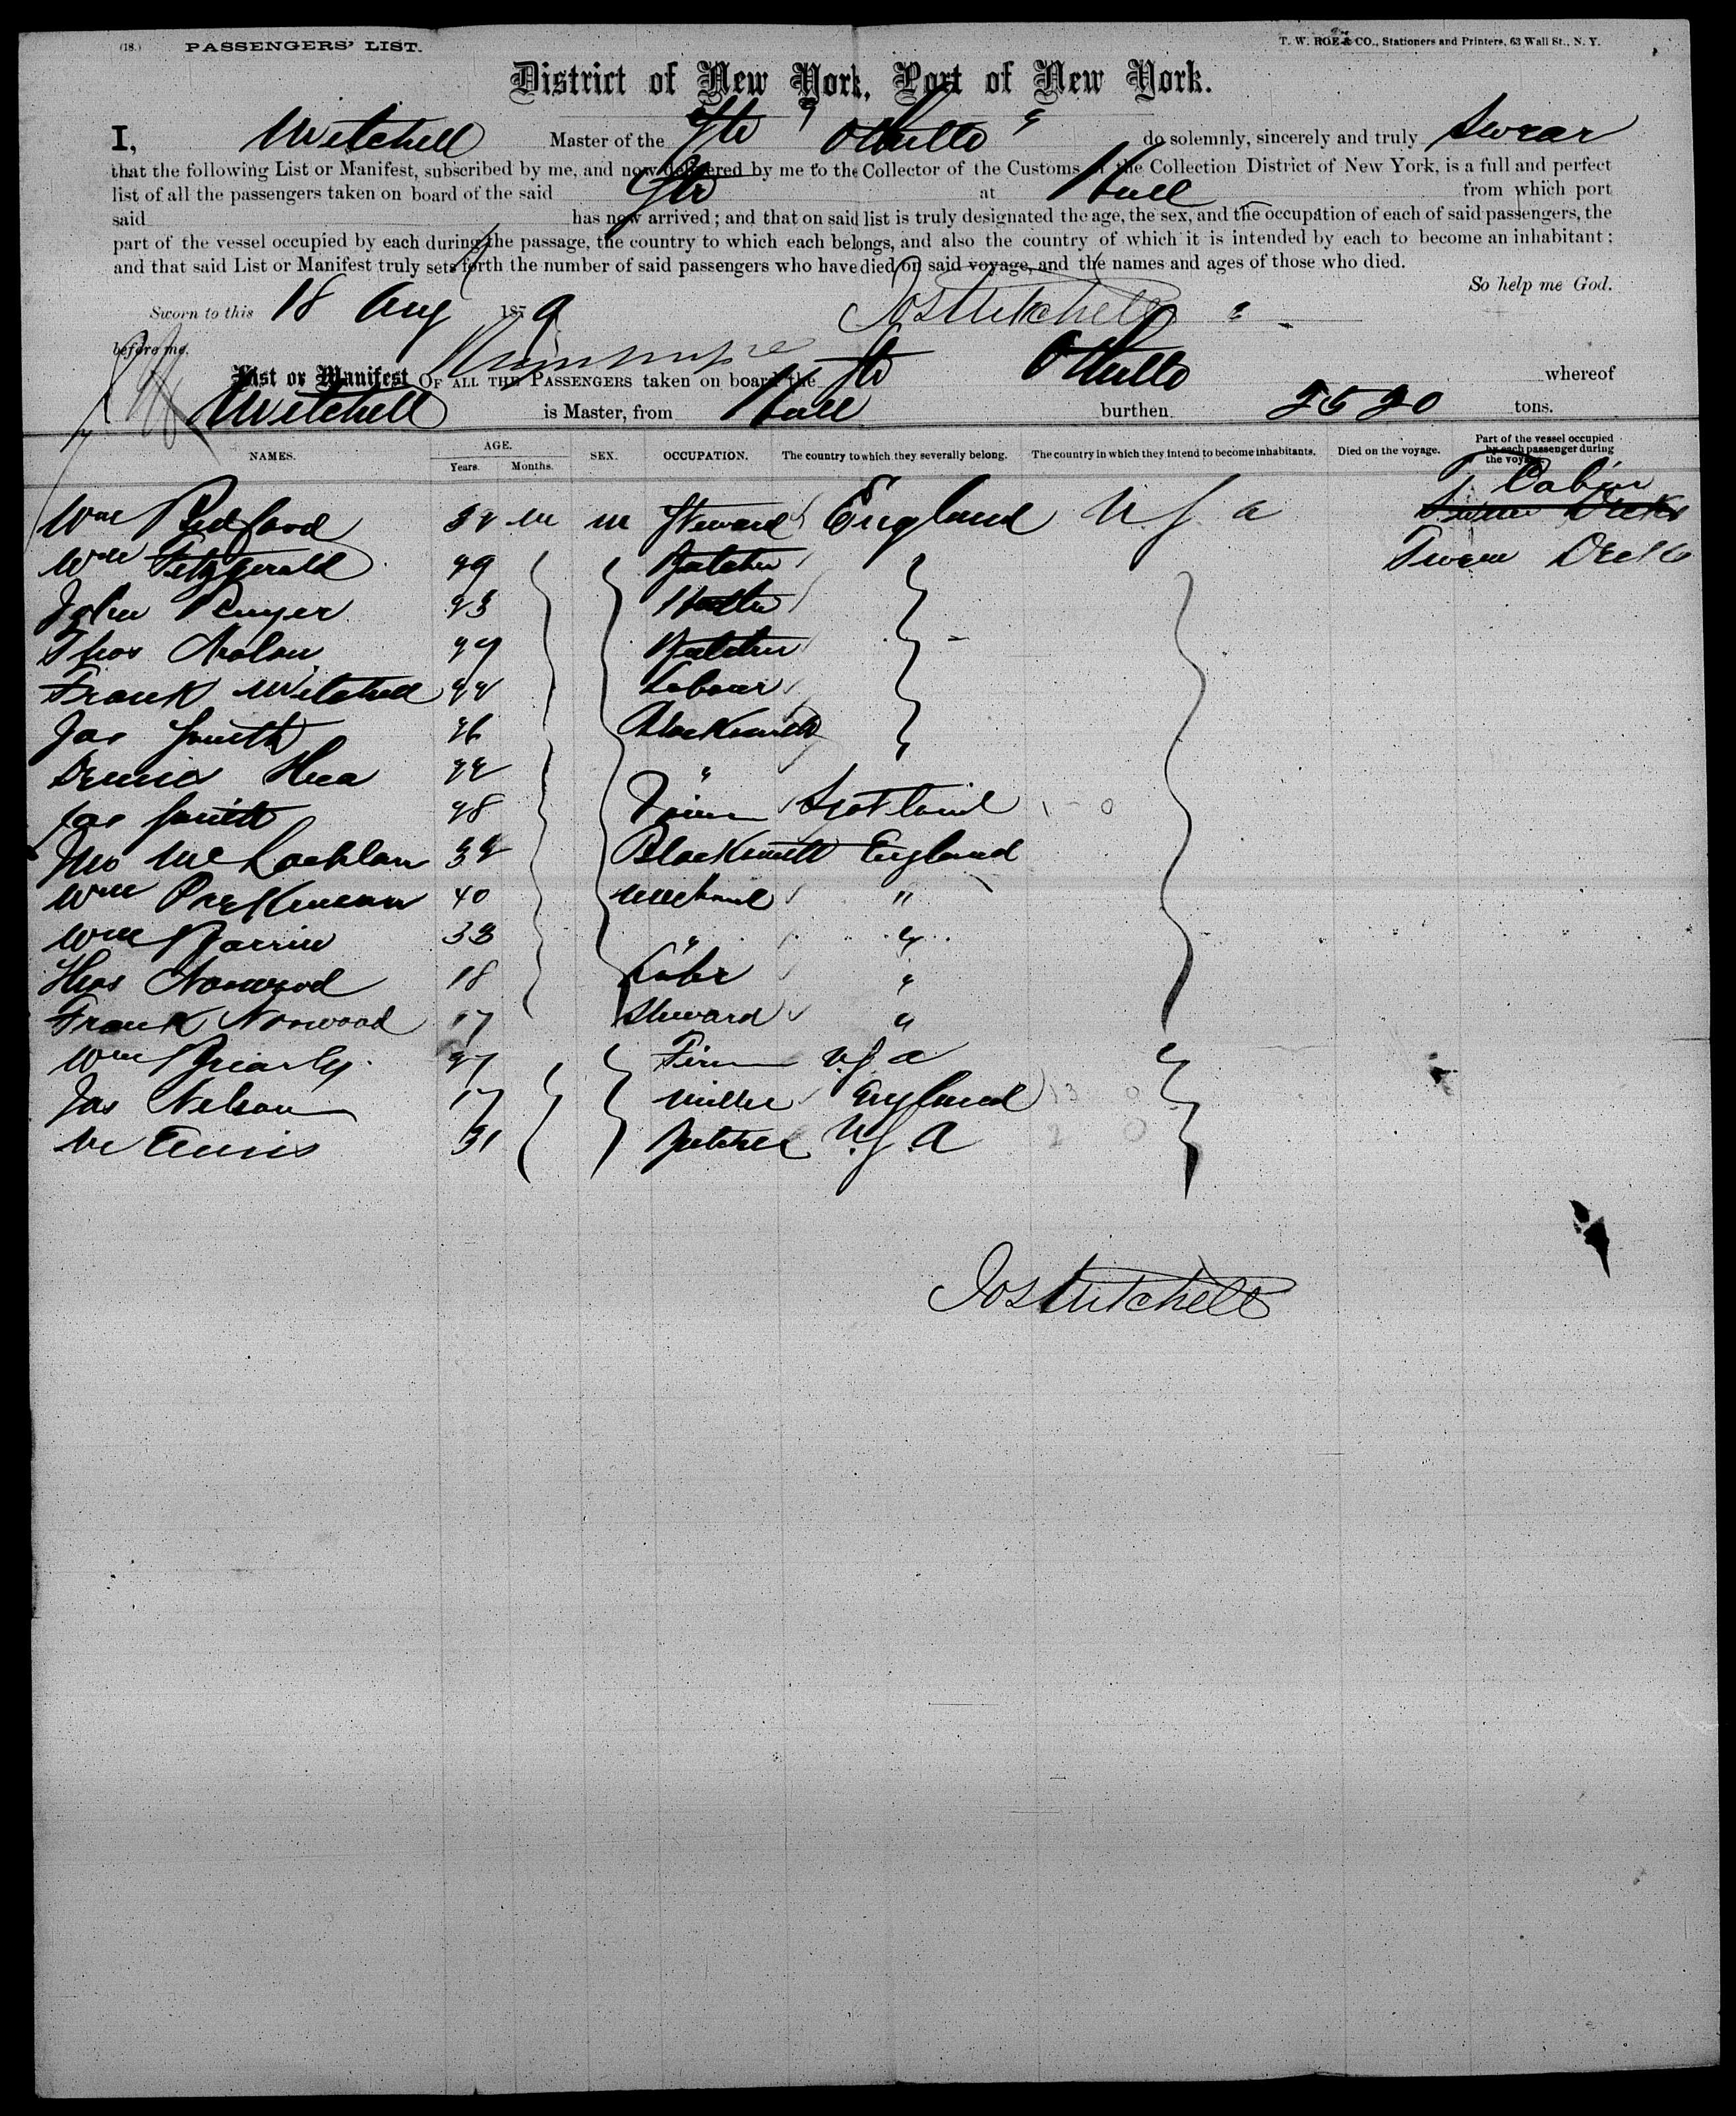 (18.) PASSENGERS' LIST. T. W. ROE & CO., Stationers and Printers, 63 Wall St., N. Y.
District of New York, Port of New York.
I, Mitchell Master of the Str "Othello" do solemnly, sincerely and truly Swear
that the following List or Manifest, subscribed by me, and now delivered by me to the Collector of the Customs of the Collection District of New York, is a full and perfect
list of all the passengers taken on board of the said Str at Hull from which port
said has now arrived; and that on said list is truly designated the age, the sex, and the occupation of each of said passengers, the
part of the vessel occupied by each during the passage, the country to which each belongs, and also the country of which it is intended by each to become an inhabitant;
and that said List or Manifest truly sets forth the number of said passengers who have died on said voyage, and the names and ages of those who died.
So help me God.
Sworn to this 18 Aug 1879 Jos Mitchell
before me.
List or Manifest OF ALL THE PASSENGERS taken on board the Str Othello whereof
Mitchell is Master, from Hull burthen. 2520 tons.
NAMES. AGE. Years. Months. SEX. OCCUPATION. The country to which they severally belong. The country in which they intend to become inhabitants. Died on the voyage. Part of the vessel occupied by each passenger during the voyage.
Cabin
Wm Bedford 32 m m Steward England U S A Tween Decks
Wm Fitzgerald 29 Butcher Tween Decks
John 23
Thos 29 Butcher
Frank Mitchell 22 Labourer
Jas Smith 26 Blacksmith
Dennis Shea 22 "
Jas Smith 28 Scotland
Jno McLachlan 32 Blacksmith England
Wm Parkman 40 Mechanic "
Wm 33 " "
Thos Norwood 18 Labr "
Frank Norwood 17 Steward "
Wm Briarly 27 U.S. A
Jas Nelson 17 Miller England 13 0
31 Butcher U.S. A 2 0
Jos Mitchell